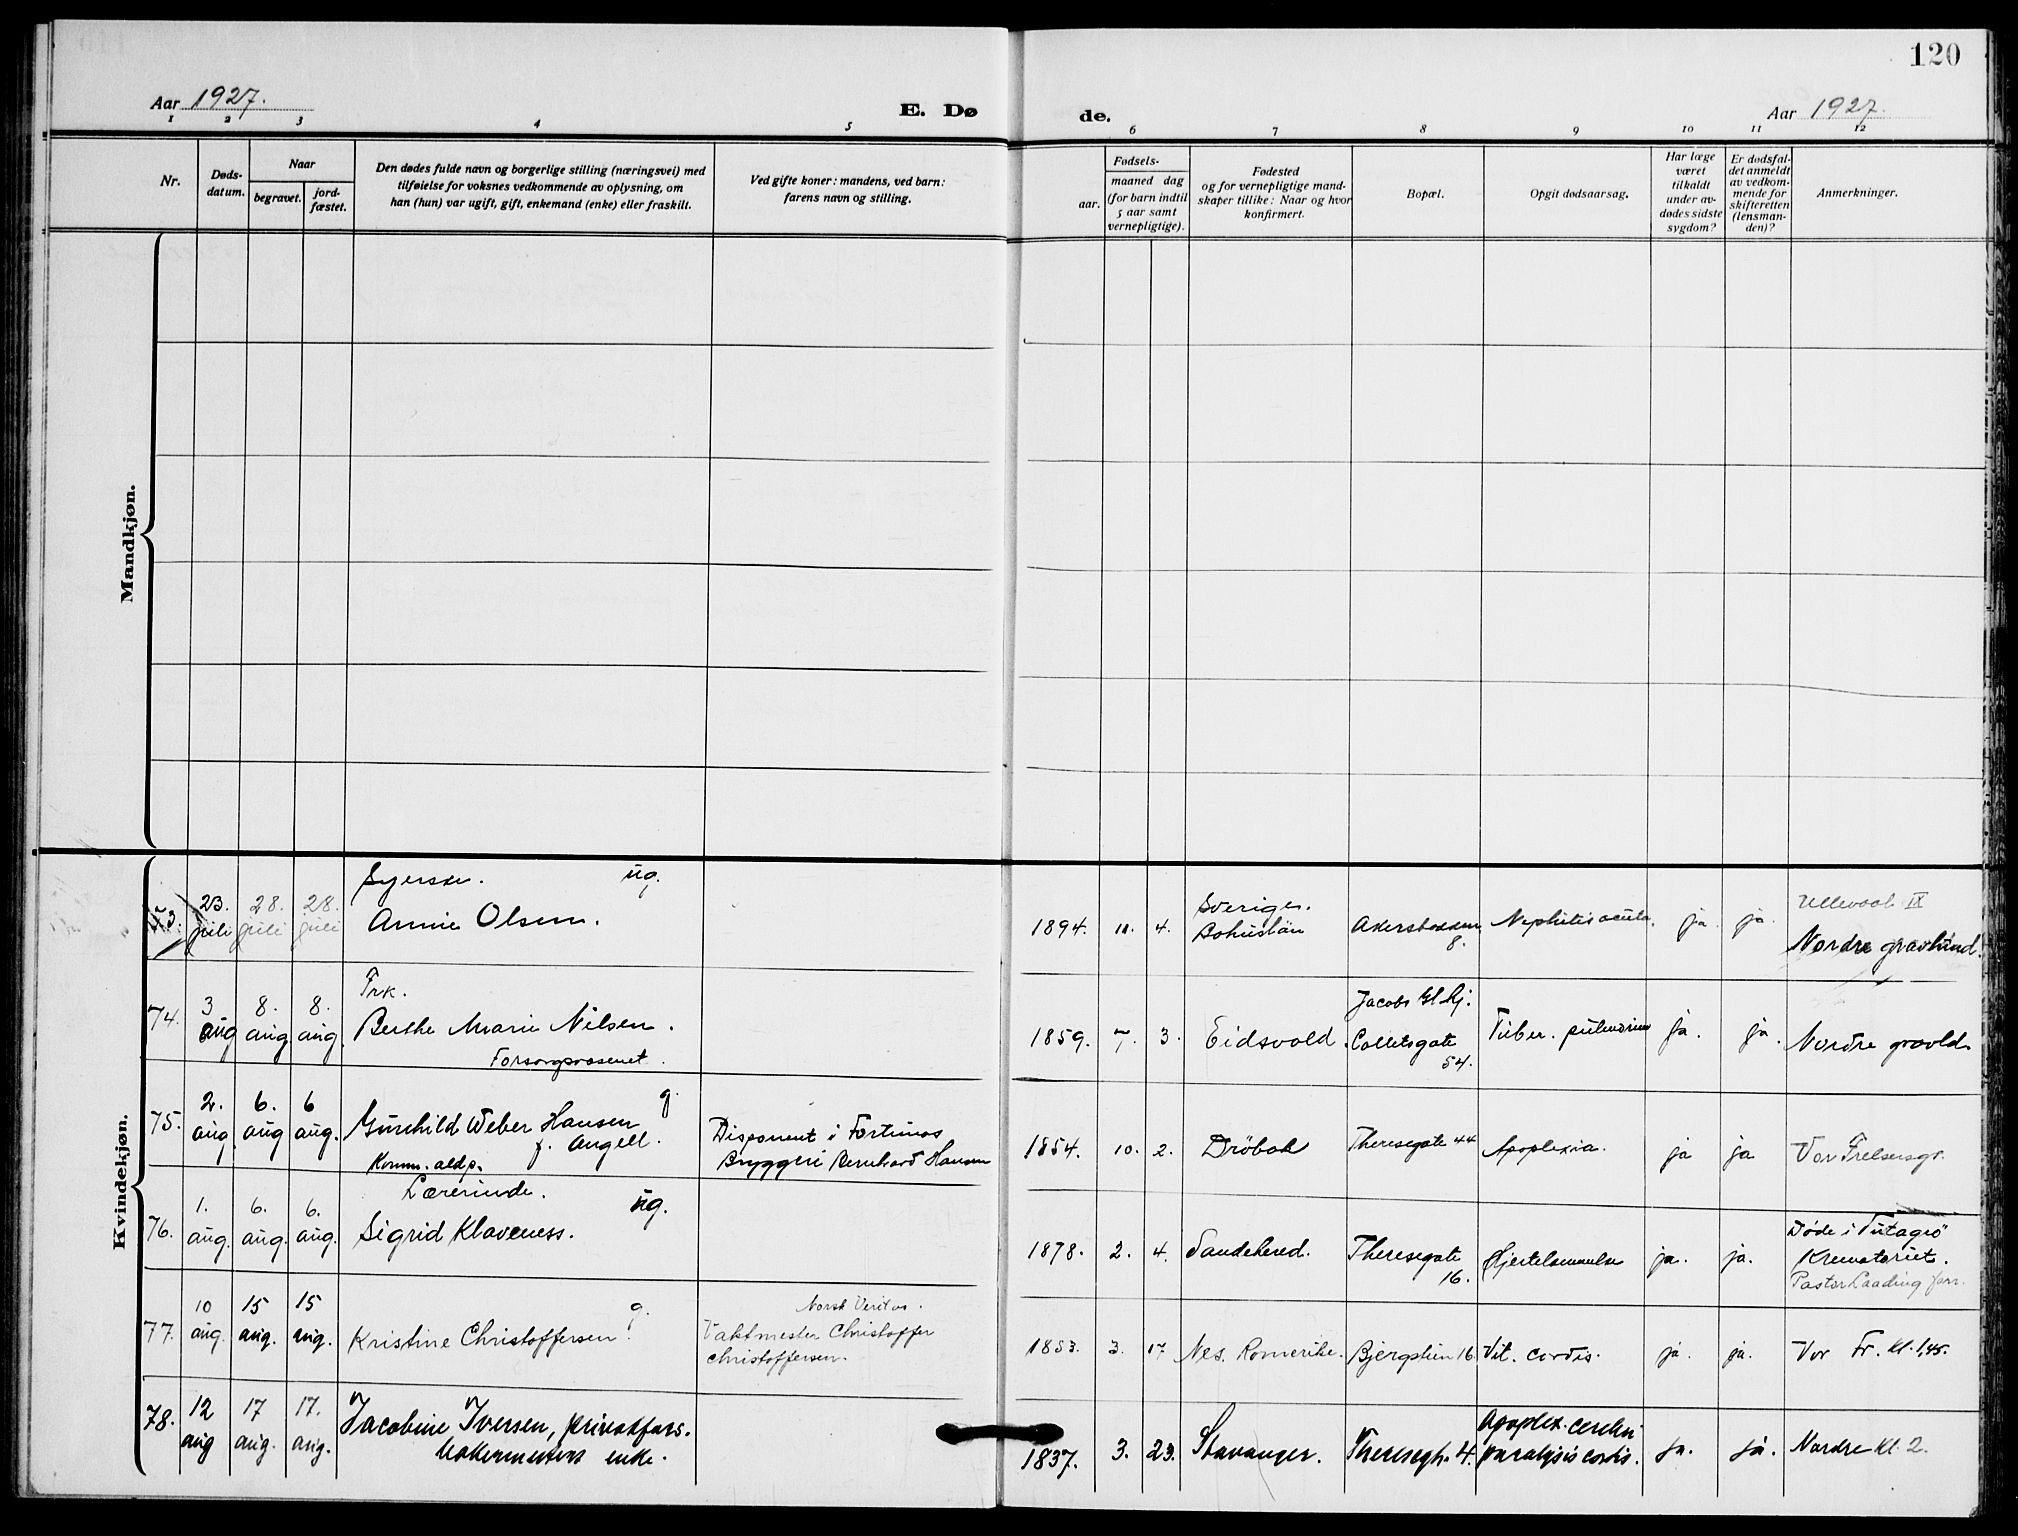 120
Aar 1927.
E. Dø
de.
Aar 1927.
1 2 3 4 5 6 7 8 9 10 11 12
Nr.
Døds-
datum.
Naar
begravet.
jord-
fæstet.
Den dødes fulde navn og borgerlige stilling (næringsvei) med
tilføielse for voksnes vedkommende av oplysning, om
han (hun) var ugift, gift, enkemand (enke) eller fraskilt.
Ved gifte koner: mandens, ved barn:
farens navn og stilling.
Fødsels-
aar.
maaned dag
(for barn indtil
5 aar samt
vernepligtige).
Fødested
og for vernepligtige mand-
skaper tillike: Naar og hvor
konfirmert.
Bopæl.
Opgit dødsaarsag.
Har læge
været
tilkaldt
under av-
dødes sidste
sygdom?
Er dødsfal-
det anmeldt
av vedkom-
mende for
skifteretten
(lensman-
den)?
Anmerkninger.
Mandkjøn.
Kvindekjøn.
73.
23. juli
28. juli
28. juli
Syerske. ug.
Annie Olsen.
1894. 11. 4.
Sverige.
Bohuslän
Akersbakken
8.
Nephritis acuta.
ja
ja.
Ullevaal IX
Nordre gravlund.
74.
3 aug
8. aug
8. aug
Frk.
Berthe Marie Nilsen.
Forsorgsvæsenet.
1859. 7. 3.
Eidsvold.
Jacobs Gl. hj.
Colletsgate
54.
Tuber. pulmonum
ja.
ja.
Nordre gravld.
75.
2. aug.
6. aug
6 aug.
Gunhild Weber Hansen g.
f. Angell.
Disponent i Fortunas
Bryggeri Bernhard Hansen
1854. 10. 2.
Dröbak
Theresegate 44
Apoplexia.
ja
ja
Vor Frelsersgr.
76.
1. aug.
6. aug.
6. aug.
Komm. aldp.
Lærerinde. ug.
Sigrid Klaveness.
1878. 2. 4.
Sandehered.
Theresegate
16.
Hjertelammelse
ja.
ja.
Døde i
Krematoriet.
Pastor Laading forr.
77.
10 aug.
15 aug.
15 aug.
Kristine Christoffersen g.
Norsk Veritas.
Vaktmester Christoffer
Christoffersen.
1853. 3. 17
Nes. Romerike.
Bjergstien 16
Vit. cordis.
ja.
ja.
Vor Fr. Kl. 1,45.
78.
12 aug
17 aug.
17. aug.
Jacobine Iversen,
enke.
1837. 3. 23.
Stavanger.
Theresegt. 4.
Apoplex. cerebri
paralysis cordis.
ja.
ja.
Nordre Kl. 2.